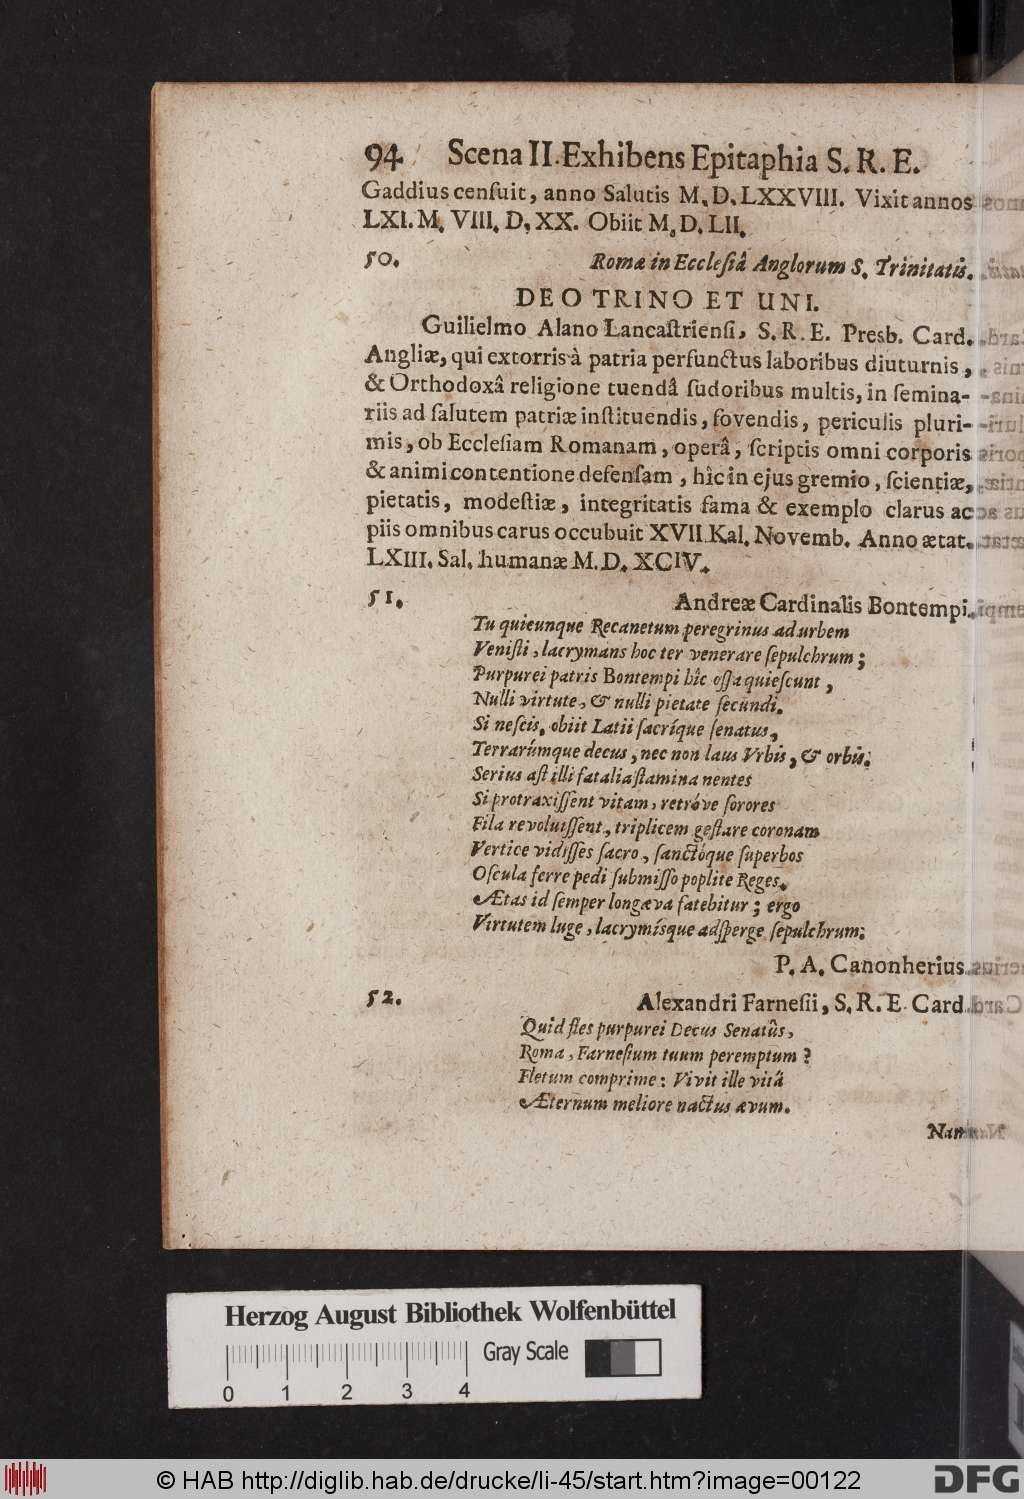 94 Scena II. Exhibens Epitaphia S. R. E.
Gaddius cenſuit, anno Salutis M. D. LXXVIII. Vixit annos
LXI. M. VIII. D. XX. Obiit M. D. LII.
50. Romæ in Eccleſiâ Anglorum S. Trinitatis.
DEO TRINO ET UNI.
Guilielmo Alano Lancaſtrienſi, S. R. E. Presb. Card.
Angliæ, qui extorris à patria perfunctus laboribus diuturnis,
& Orthodoxâ religione tuendâ ſudoribus multis, in ſemina-
riis ad ſalutem patriæ inſtituendis, fovendis, periculis pluri-
mis, ob Eccleſiam Romanam, operâ, ſcriptis omni corporis
& animi contentione defenſam, hîc in ejus gremio, ſcientiæ,
pietatis, modeſtiæ, integritatis fama & exemplo clarus ac
piis omnibus carus occubuit XVII Kal. Novemb. Anno ætat.
LXIII. Sal. humanæ M. D. XCIV.
51. Andreæ Cardinalis Bontempi.
Tu quicunque Recanetum peregrinus ad urbem
Veniſti, lacrymans hoc ter venerare ſepulchrum;
Purpurei patris Bontempi hîc oſſa quieſcunt,
Nulli virtute, & nulli pietate ſecundi.
Si neſcis, obiit Latii ſacríque ſenatus,
Terrarúmque decus, nec non laus Vrbis, & orbis.
Serius aſt illi fatalia ſtamina nentes
Si protraxiſſent vitam, retróve ſorores
Fila revoluiſſent, triplicem geſtare coronam
Vertice vidiſſes ſacro, ſanctóque ſuperbos
Oſcula ferre pedi ſubmiſſo poplite Reges.
Ætas id ſemper longæva fatebitur; ergo
Virtutem luge, lacrymíſque adſperge ſepulchrum.
P. A. Canonherius.
52. Alexandri Farneſii, S. R. E. Card.
Quid fles purpurei Decus Senatûs,
Roma, Farneſium tuum peremptum?
Fletum comprime: Vivit ille vitâ
Æternum meliore nactus ævum.
Nam
Herzog August Bibliothek Wolfenbüttel
Gray Scale
0 1 2 3 4
© HAB http://diglib.hab.de/drucke/li-45/start.htm?image=00122
DFG